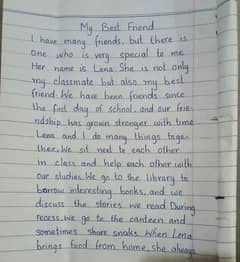 My Best Friend
I have many friends, but there is
one who is very special to me
Her name is Lena. She is not only
my classmate but also my best
friend. We have been friends since
the first day of school, and our frie-
ndship has grown stronger with time
Lena and I do many things toge-
ther. We sit next to each other
in class and help each other with
our studies. We go to the library to
borrow interesting books, and we
discuss the stories we read. During
recess, we go to the canteen and
sometimes share snaks. When Lena
brings food from home, she always